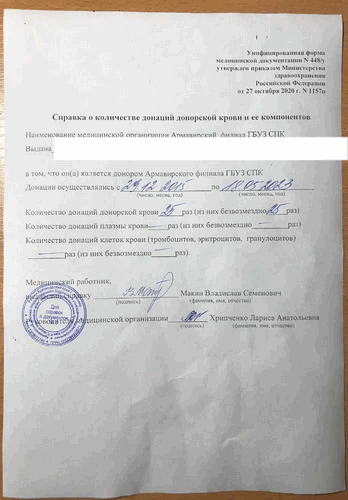 Унифицированная форма
медицинской документации N 448/у
утвержден приказом Министерства
здравоохранения
Российской Федерации
от 27 октября 2020 г. N 1157н
Справка о количестве донаций донорской крови и ее компонентов
Наименование медицинской организации Армавирский филиал ГБУЗ СПК
Выдана
в том, что он(а) является донором Армавирского филиала ГБУЗ СПК
Донации осуществлялись с 29.12.2015 по 18.05.2023
(число, месяц, год) (число, месяц, год)
Количество донаций донорской крови 25 раз (из них безвозмездно 25 раз)
Количество донаций плазмы крови — раз (из них безвозмездно — раз)
Количество донаций клеток крови (тромбоцитов, эритроцитов, гранулоцитов)
— раз (из них безвозмездно — раз).
Медицинский работник,
справку Макин Владислав Семенович
(подпись) (фамилия, имя, отчество)
Для справок и документов
медицинской организации Хрипченко Лариса Анатольевна
(подпись) (фамилия, имя, отчество)